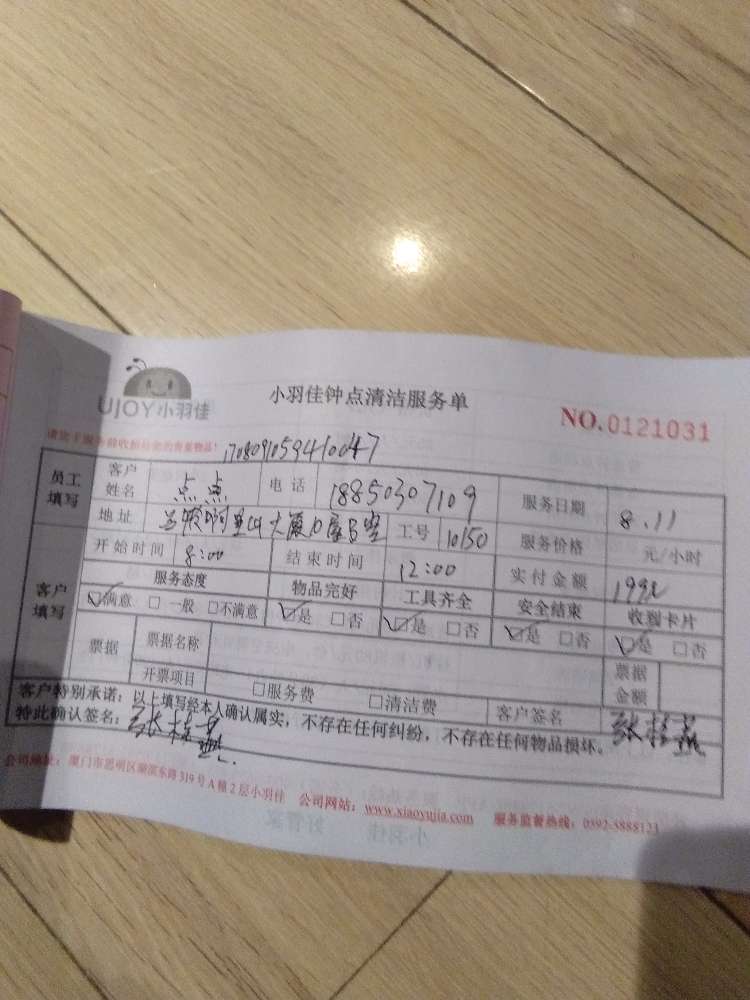 UJOY小羽佳
小羽佳钟点清洁服务单
NO.0121031
1708091059410047
员工填写 客户姓名 点点 电话 18850307109 服务日期 8.11
地址 大厦 工号 10150 服务价格 元/小时
客户填写 开始时间 8:00 结束时间 12:00 实付金额
服务态度 物品完好 工具齐全 安全结束 收到卡片
☑满意 □一般 □不满意 ☑是 □否 ☑是 □否 ☑是 □否 ☑是 □否
票据 票据名称 票据金额
开票项目 □服务费 □清洁费 客户签名 张桂燕
客户特别承诺：以上填写经本人确认属实，不存在任何纠纷，不存在任何物品损坏。
特此确认签名：张桂燕
公司地址：厦门市思明区湖滨东路319号A幢2层小羽佳 公司网站：www.xiaoyujia.com 服务监督热线：0592-5888123